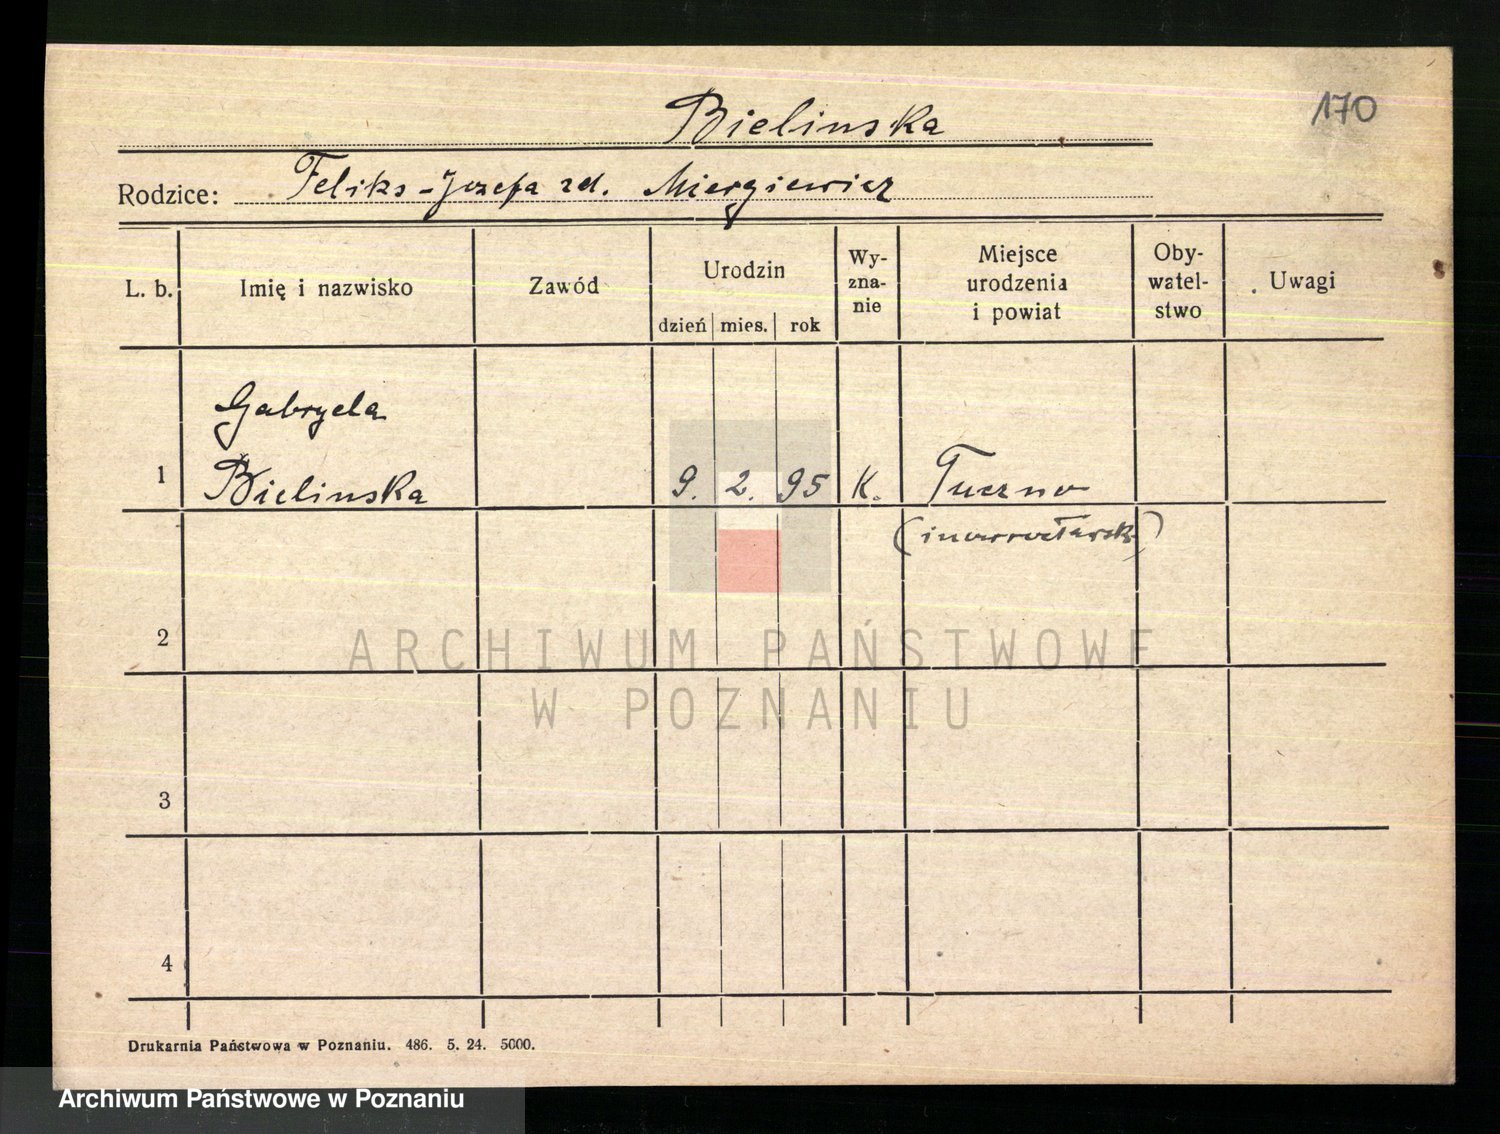 170
Bielinska
Rodzice: Feliks - Jozefa zd. Miergiewicz
L. b.
Imię i nazwisko
Zawód
Urodzin
dzień mies. rok
Wy-
zna-
nie
Miejsce
urodzenia
i powiat
Oby-
watel-
stwo
Uwagi
Gabryela
1 Bielinska 9. 2. 95 K. Tuczno
(inowrocławsk)
2
ARCHIWUM PAŃSTWOWE
W POZNANIU
3
4
Drukarnia Państwowa w Poznaniu. 486. 5. 24. 5000.
Archiwum Państwowe w Poznaniu